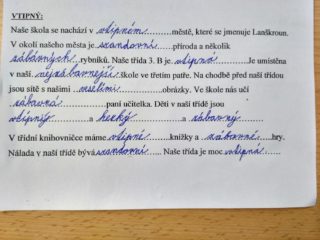 VTIPNÝ:
Naše škola se nachází v ..vtipném......městě, které se jmenuje Lanškroun.
V okolí našeho města je..srandovní.....příroda a několik
..zábavných..rybníků. Naše třída 3. B je..vtipná......Je umístěna
v naší..nejzábavnejší...škole ve třetím patře. Na chodbě před naší třídou
jsou sítě s našimi...veselími.......obrázky. Ve škole nás učí
..zábavná......paní učitelka. Děti v naší třídě jsou
..vtipný......a..hezký.......a..zábavný......
V třídní knihovničce máme..vtipné....knížky a..zábavné...hry.
Nálada v naší třídě bývá..srandovní.... Naše třída je moc..vtipná.....